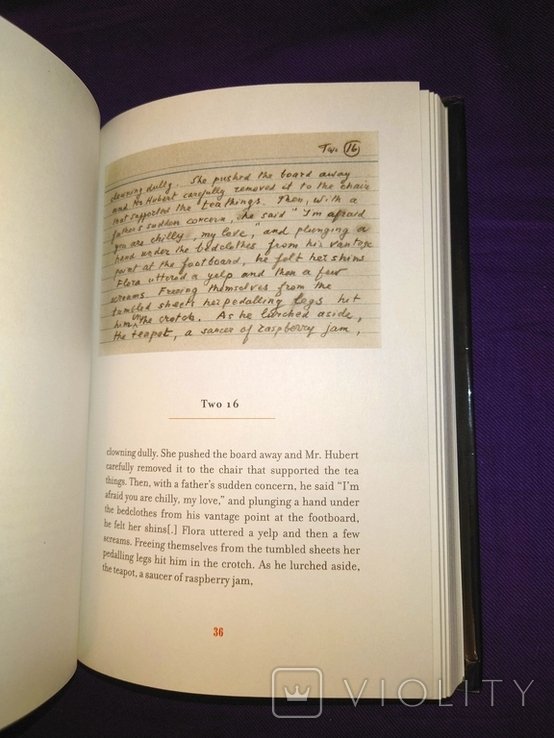 Two 16
clowning dully. She pushed the board away
and Mr Hubert carefully removed it to the chair
that supported the tea things. Then, with a
father's sudden concern, he said "I'm afraid
you are chilly, my love," and plunging a
hand under the bedclothes from his vantage
point at the footboard, he felt her shins
Flora uttered a yelp and then a few
screams. Freeing themselves from the
tumbled sheets her pedalling legs hit
him in the crotch. As he lurched aside,
the teapot, a saucer of raspberry jam,
Two 16
clowning dully. She pushed the board away and Mr. Hubert
carefully removed it to the chair that supported the tea
things. Then, with a father's sudden concern, he said “I'm
afraid you are chilly, my love,” and plunging a hand under
the bedclothes from his vantage point at the footboard,
he felt her shins[.] Flora uttered a yelp and then a few
screams. Freeing themselves from the tumbled sheets her
pedalling legs hit him in the crotch. As he lurched aside,
the teapot, a saucer of raspberry jam,
36
VIOLITY